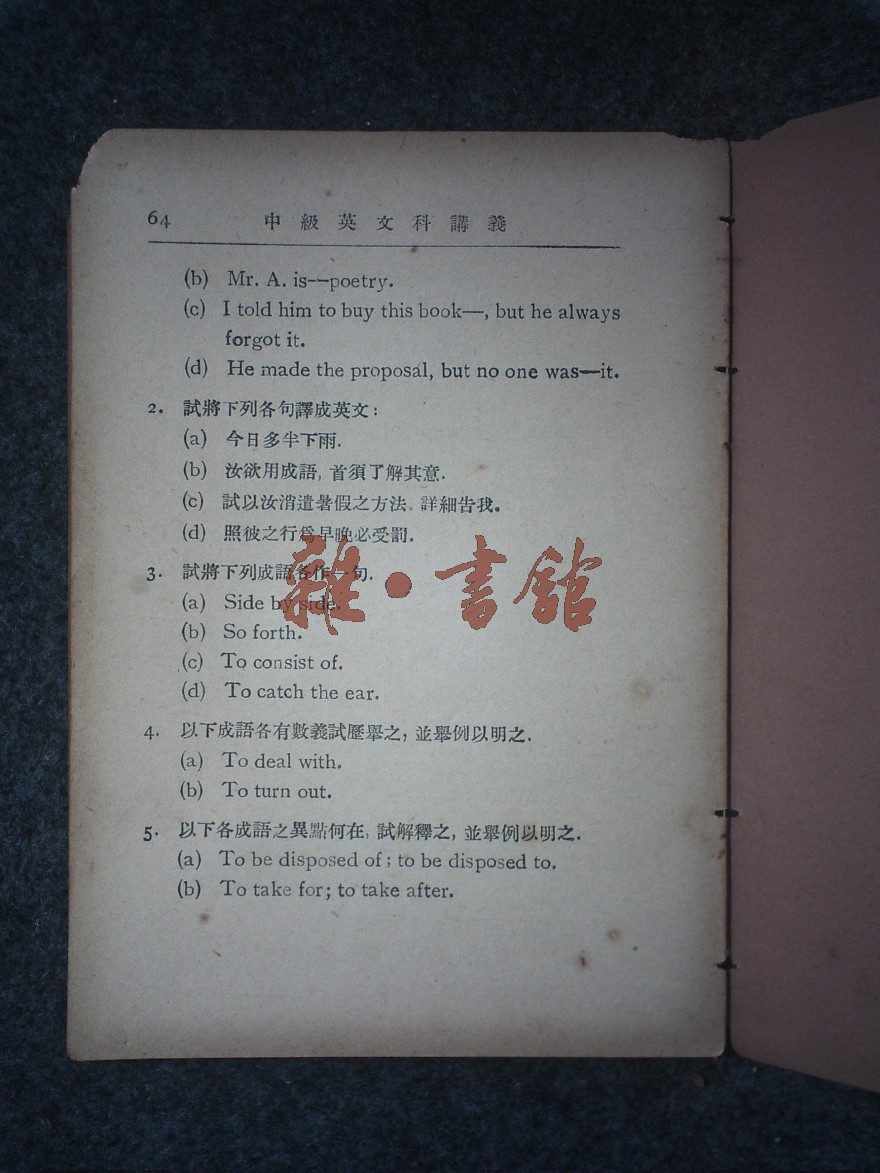 64 中級英文科講義
(b) Mr. A. is--poetry.
(c) I told him to buy this book—, but he always
forgot it.
(d) He made the proposal, but no one was—it.
2. 試將下列各句譯成英文:
(a) 今日多半下雨.
(b) 汝欲用成語, 首須了解其意.
(c) 試以汝消遣暑假之方法。詳細告我。
(d) 照彼之行爲早晚必受罰.
3. 試將下列成語各作一句.
(a) Side by side.
(b) So forth.
(c) To consist of.
(d) To catch the ear.
4. 以下成語各有數義試歷舉之, 並舉例以明之.
(a) To deal with.
(b) To turn out.
5. 以下各成語之異點何在, 試解釋之, 並舉例以明之.
(a) To be disposed of; to be disposed to.
(b) To take for; to take after.
雜·書館